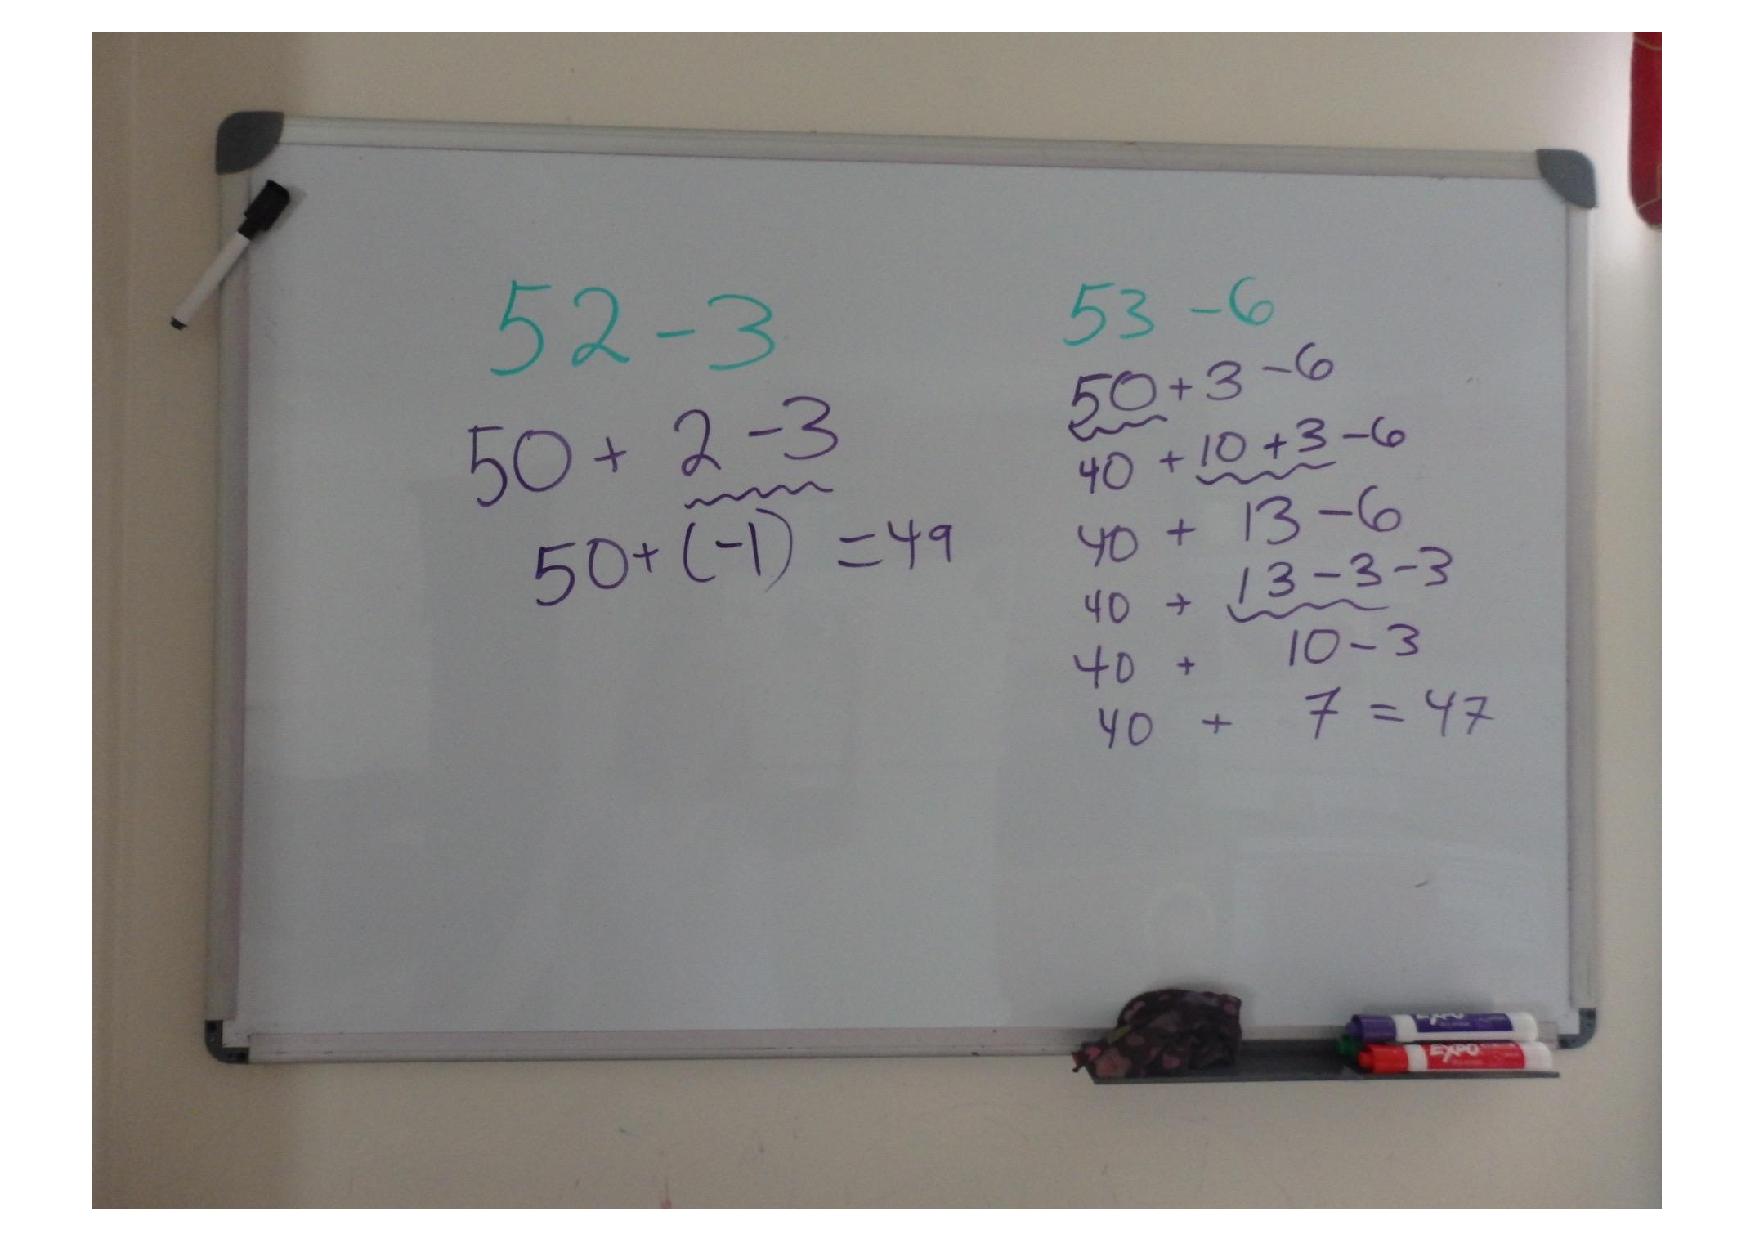 52 - 3
50 + 2 - 3
50 + (-1) = 49
53 - 6
50 + 3 - 6
40 + 10 + 3 - 6
40 + 13 - 6
40 + 13 - 3 - 3
40 + 10 - 3
40 + 7 = 47
EXPO
EXPO